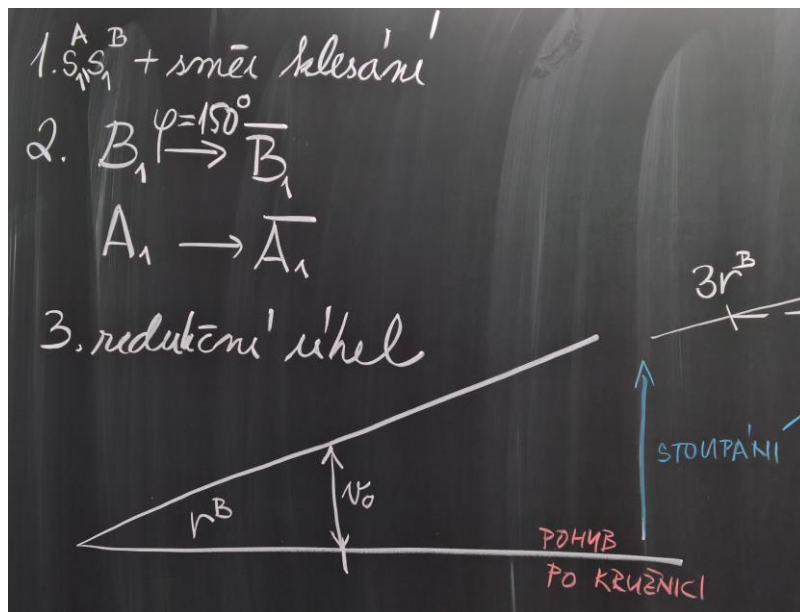 1. s₁ᴬ s₁ᴮ + směr klesání
2. B₁ φ=150° ⟼ B̅₁
A₁ → A̅₁
3. redukční úhel
3rᴮ
STOUPÁNÍ
rᴮ
v₀
POHYB
PO KRUŽNICI